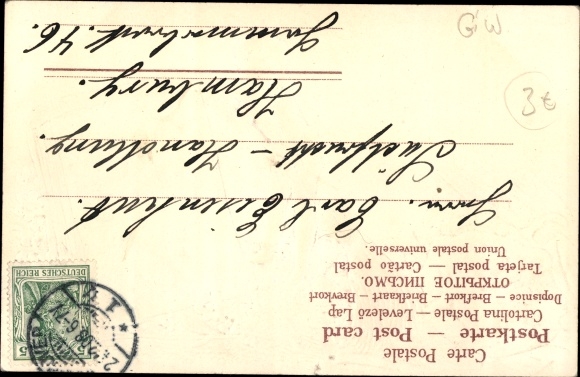 Carte Postale
Postkarte — Post card
Cartolina Postale — Levelező Lap
Dopisnice — Brefkort — Briefkaart — Brevkort
ОТКРЫТОЕ ПИСЬМО.
Tarjeta postal — Cartão postal
Union postale universelle.
DEUTSCHES REICH
5
Herrn. Carl Eisenhut.
Südfrucht – Handlung.
Hamburg.
46.
3€
GW